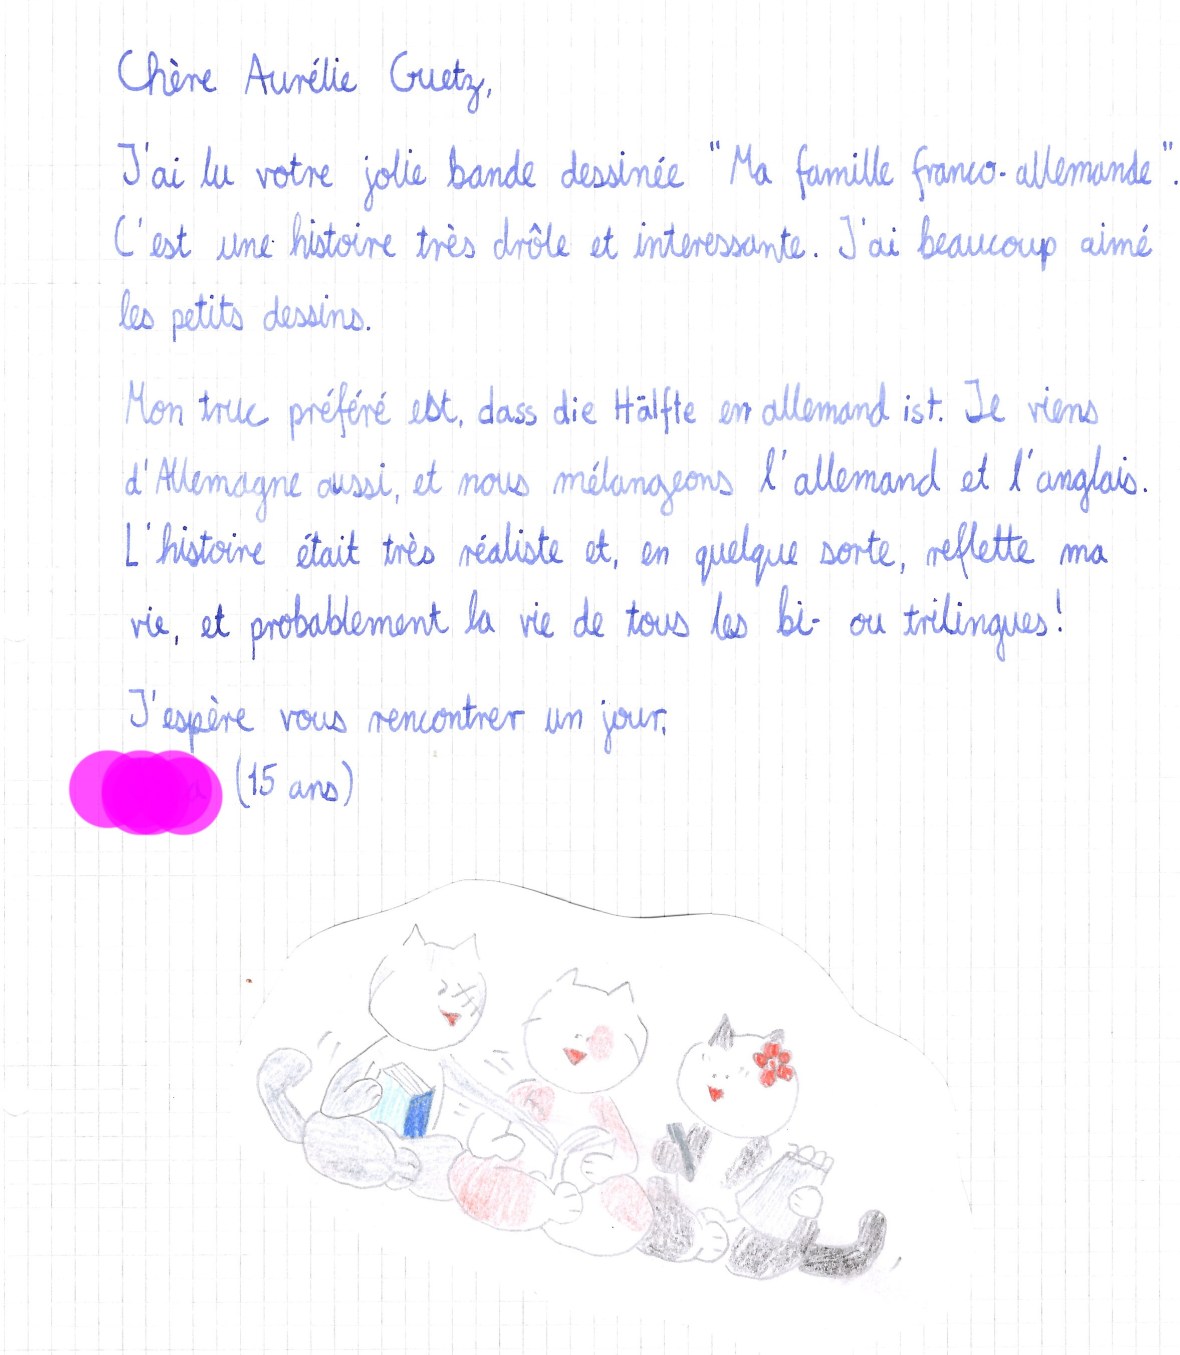 Chère Aurélie Guetz,
J'ai lu votre jolie bande dessinée "Ma famille franco-allemande".
C'est une histoire très drôle et interessante. J'ai beaucoup aimé
les petits dessins.
Mon truc préféré est, dass die Hälfte en allemand ist. Je viens
d'Allemagne aussi, et nous mélangeons l'allemand et l'anglais.
L'histoire était très réaliste et, en quelque sorte, reflette ma
vie, et probablement la vie de tous les bi- ou trilingues!
J'espère vous rencontrer un jour,
(15 ans)